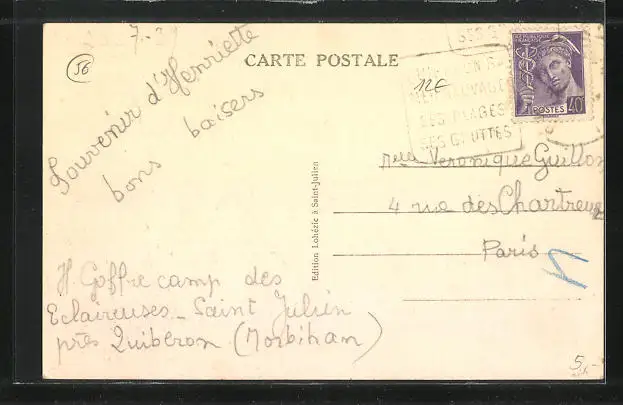 7-39
56
CARTE POSTALE
12€
REPUBLIQUE FRANÇAISE
POSTES 40
SES PLAGES
SES GROTTES
Souvenir d'Henriette
bons baisers
Edition Lohézic à Saint-Julien
Melle Veronique Guillon
4 rue des Chartreux
Paris
H. Goffre camp des
Eclaireuses - Saint Julien
près Quiberon (Morbihan)
5,-